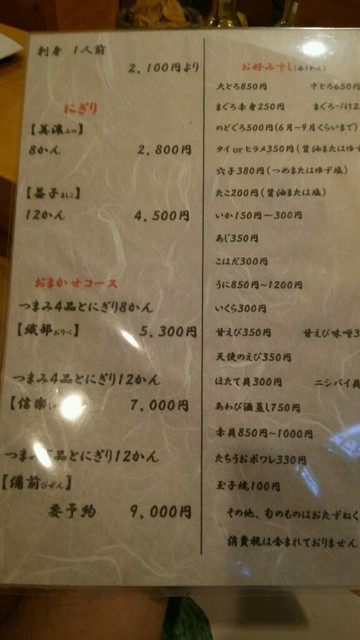 刺身 1人前
2,100円より
にぎり
【美濃みの】
8かん 2,800円
12かん 4,500円
おまかせコース
つまみ4品とにぎり8かん
【織部おりべ】 5,300円
つまみ4品とにぎり12かん
【信楽 7,000円
つまみ 品とにぎり12かん
【備前びぜん】
要予約 9,000円
お好みずし(各1かん)
大とろ850円 中とろ650円
まぐろ赤身250円 まぐろづけ2
のどぐろ500円(6月~9月くらいまで)
タイorヒラメ350円(醤油またはゆず
穴子380円(つめまたはゆず塩)
たこ200円(醤油または塩)
いか150円~300円
あじ350円
こはだ300円
うに850円~1200円
いくら300円
甘えび350円 甘えび味噌3
天使のえび350円
ほたて貝300円 ニシバイ貝
あわび酒蒸し750円
赤貝850円~1000円
たちうおポワレ330円
玉子焼100円
その他、旬のものはおたずねく
消費税は含まれておりません